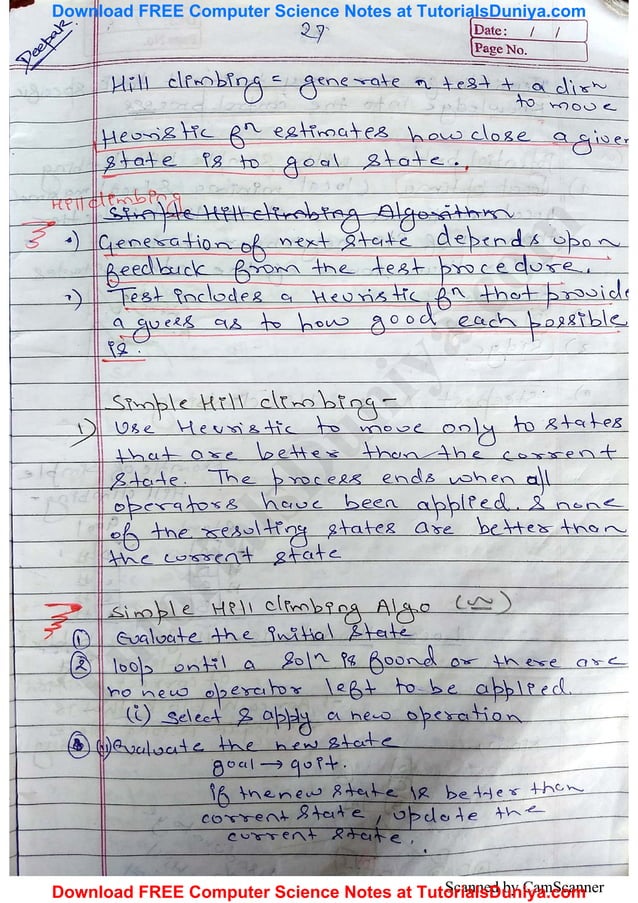 Download FREE Computer Science Notes at TutorialsDuniya.com
Deepak
27
Date: / /
Page No.
Hill climbing = generate n test + a dirn
to move
Heuristic fn estimates how close a given
state is to goal state.
Hill climbing
Simple Hill climbing Algorithm
1) Generation of next state depends upon
feedback from the test procedure.
2) Test includes a Heuristic fn that provide
a guess as to how good each possible
is.
Simple Hill climbing -
1) Use Heuristic to move only to states
that are better than the current
state. The process ends when all
operators have been applied & none
of the resulting states are better than
the current state
Simple Hill climbing Algo
① Evaluate the initial state
② loop until a soln is foond or there are
no new operator left to be applied.
(i) select & apply a new operation
(ii) Evaluate the new state
goal → quit.
if the new state is better than
current state, update the
current state.
TutorialsDuniya.com
Download FREE Computer Science Notes at TutorialsDuniya.com
Scanned by CamScanner